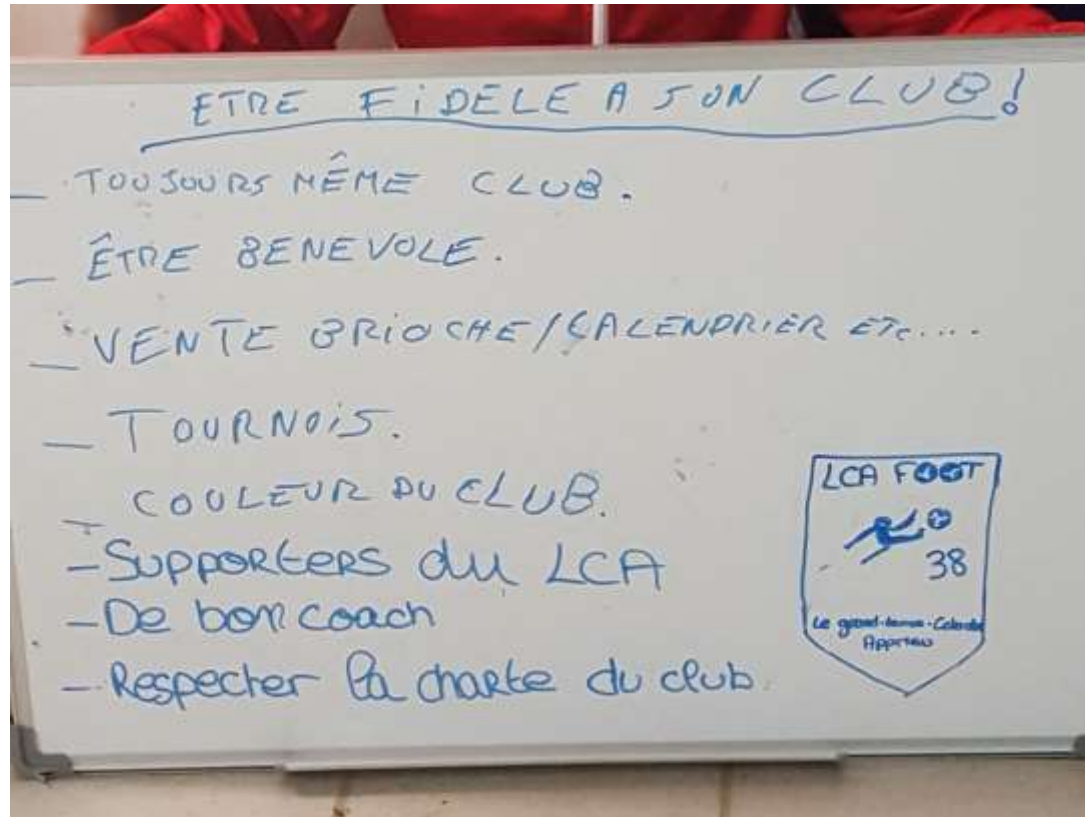 ETRE FiDELE A SON CLUB!
_ TOUJOURS MÊME CLUB.
_ ÊTRE BENEVOLE.
_ VENTE BRiOCHE/CALENDRiER ETc....
_ TOURNOiS.
_ COULEUR DU CLUB.
- Supporters du LCA
- De bon coach
- Respecter la charte du club.
LCA FOOT
38
Le grand-lemps-Colombe
Apprieu